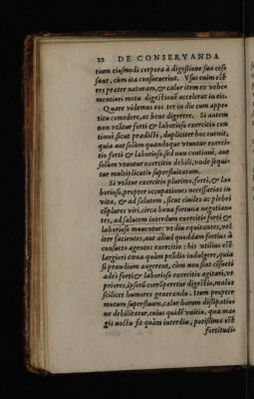 22 DE CONSERVANDA
tium eiusmodi corpora à digestione sua cesſ
sant, cùm ita consueuerint. Vsus enim est
res præter naturam, & calor item ex vehe-
mentiori motu digestionẽ accelerat in eis.
Quare videmus eos ter in die cum appe-
titu comedere, ac bene digerere. Si autem
non vtãtur forti & laborioso exercitio con-
tinuè sicut prædicti, dupliciter hoc euenit,
quia aut solùm quandoque vtuntur exerci-
tio forti & laborioso, sed non continuò, aut
solùm vtuntur exercitio debili, vnde sequi-
tur multiplicatio superfluitatum.
Si vtãtur exercitio plurimo, forti, & la-
borioso, propter occupationes necessarias in
vita, & ad salutem, sicut ciuiles ac plebei
cõplures viri, circa bona fortunæ negotian-
tes, ad salutem interdum exercitio forti &
laborioso mouentur: vt diu equitantes, vel
iter facientes, aut aliud quoddam fortius à
consueto agentes exercitio: his vtilius est
largiori cœna quàm prãdio indulgere, quia
si prandium augerent, cùm non sint cõsueti
adeò forti & laborioso exercitio agitari, vt
priores, ipsorũ corrũperetur digestio, malos
scilicet humores generando. Item propter
motum superfluum, calor horum dissipatio
ne debilitatur, cuius quidẽ vnitio, qua ma-
gis noctu fit quàm interdiu, potissima est
fortitudi